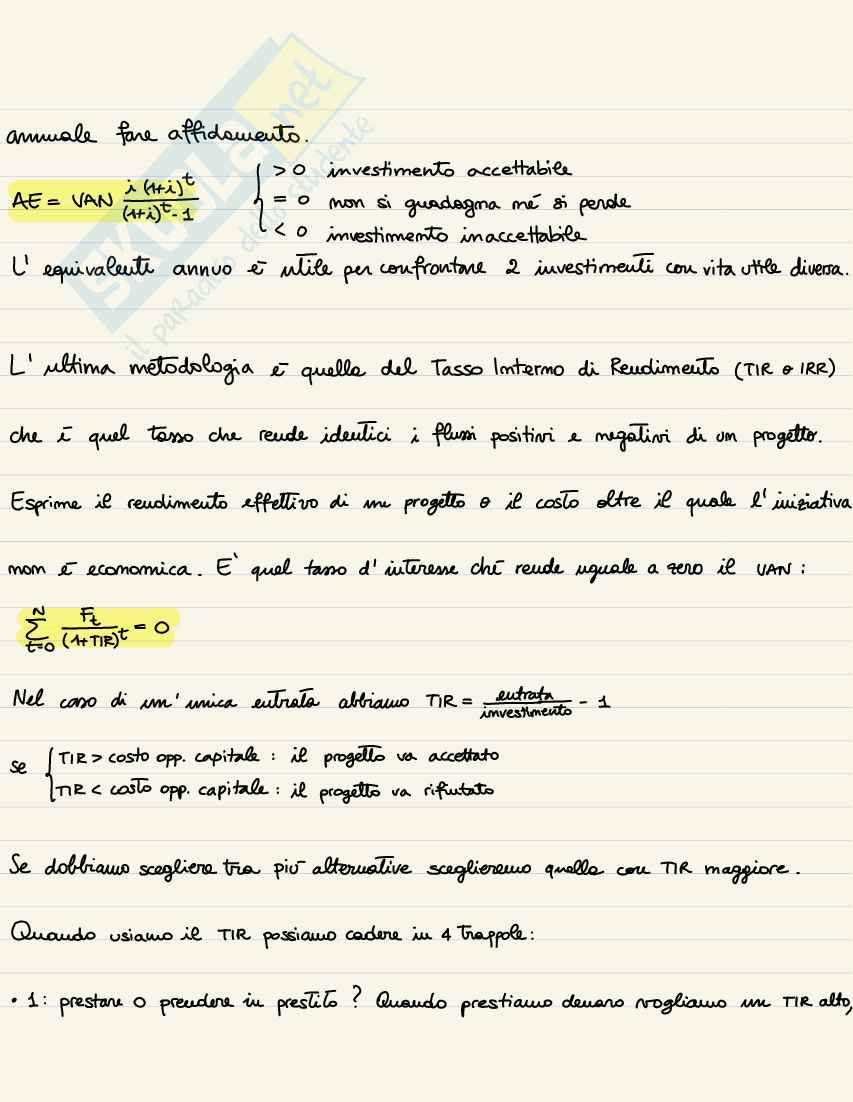 annuale fare affidamento.
AE = VAN i (1+i)^t / (1+i)^t - 1 { > 0 investimento accettabile
= 0 non si guadagna né si perde
< 0 investimento inaccettabile
L' equivalenti annuo è utile per confrontare 2 investimenti con vita utile diversa.
L' ultima metodologia è quella del Tasso Interno di Rendimento (TIR o IRR)
che è quel tasso che rende identici i flussi positivi e negativi di un progetto.
Esprime il rendimento effettivo di un progetto o il costo oltre il quale l'iniziativa
non è economica. E` quel tasso d'interesse che rende uguale a zero il VAN :
∑_{t=0}^{N} F_t / (1+TIR)^t = 0
Nel caso di un'unica entrata abbiamo TIR = entrata / investimento - 1
se { TIR > costo opp. capitale : il progetto va accettato
TIR < costo opp. capitale : il progetto va rifiutato
Se dobbiamo scegliere tra più alternative sceglieremo quella con TIR maggiore.
Quando usiamo il TIR possiamo cadere in 4 trappole:
• 1: prestare o prendere in prestito ? Quando prestiamo denaro vogliamo un TIR alto,
SKUOLA.net
il paradiso dello studente